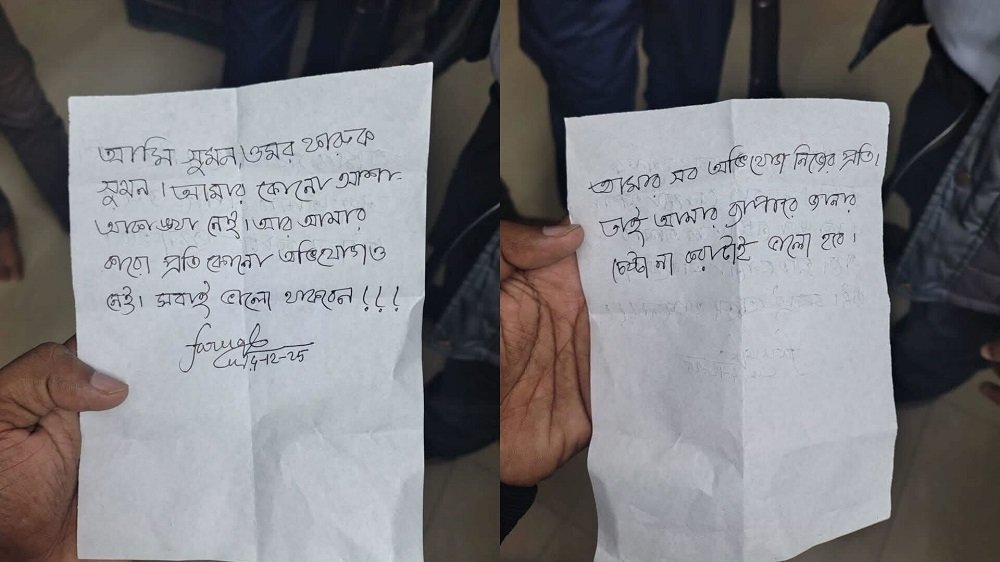 আমি সুমন, ওমর ফারুক
সুমন। আমার কোনো আশা-
আকাঙ্খা নেই। আর আমার
কারো প্রতি কোনো অভিযোগও
নেই। সবাই ভালো থাকবেন!!!
Faruq
14-12-25
আমার সব অভিযোগ নিজের প্রতি।
তাই আমার ব্যাপারে জানার
চেষ্টা না করাটাই ভালো হবে।